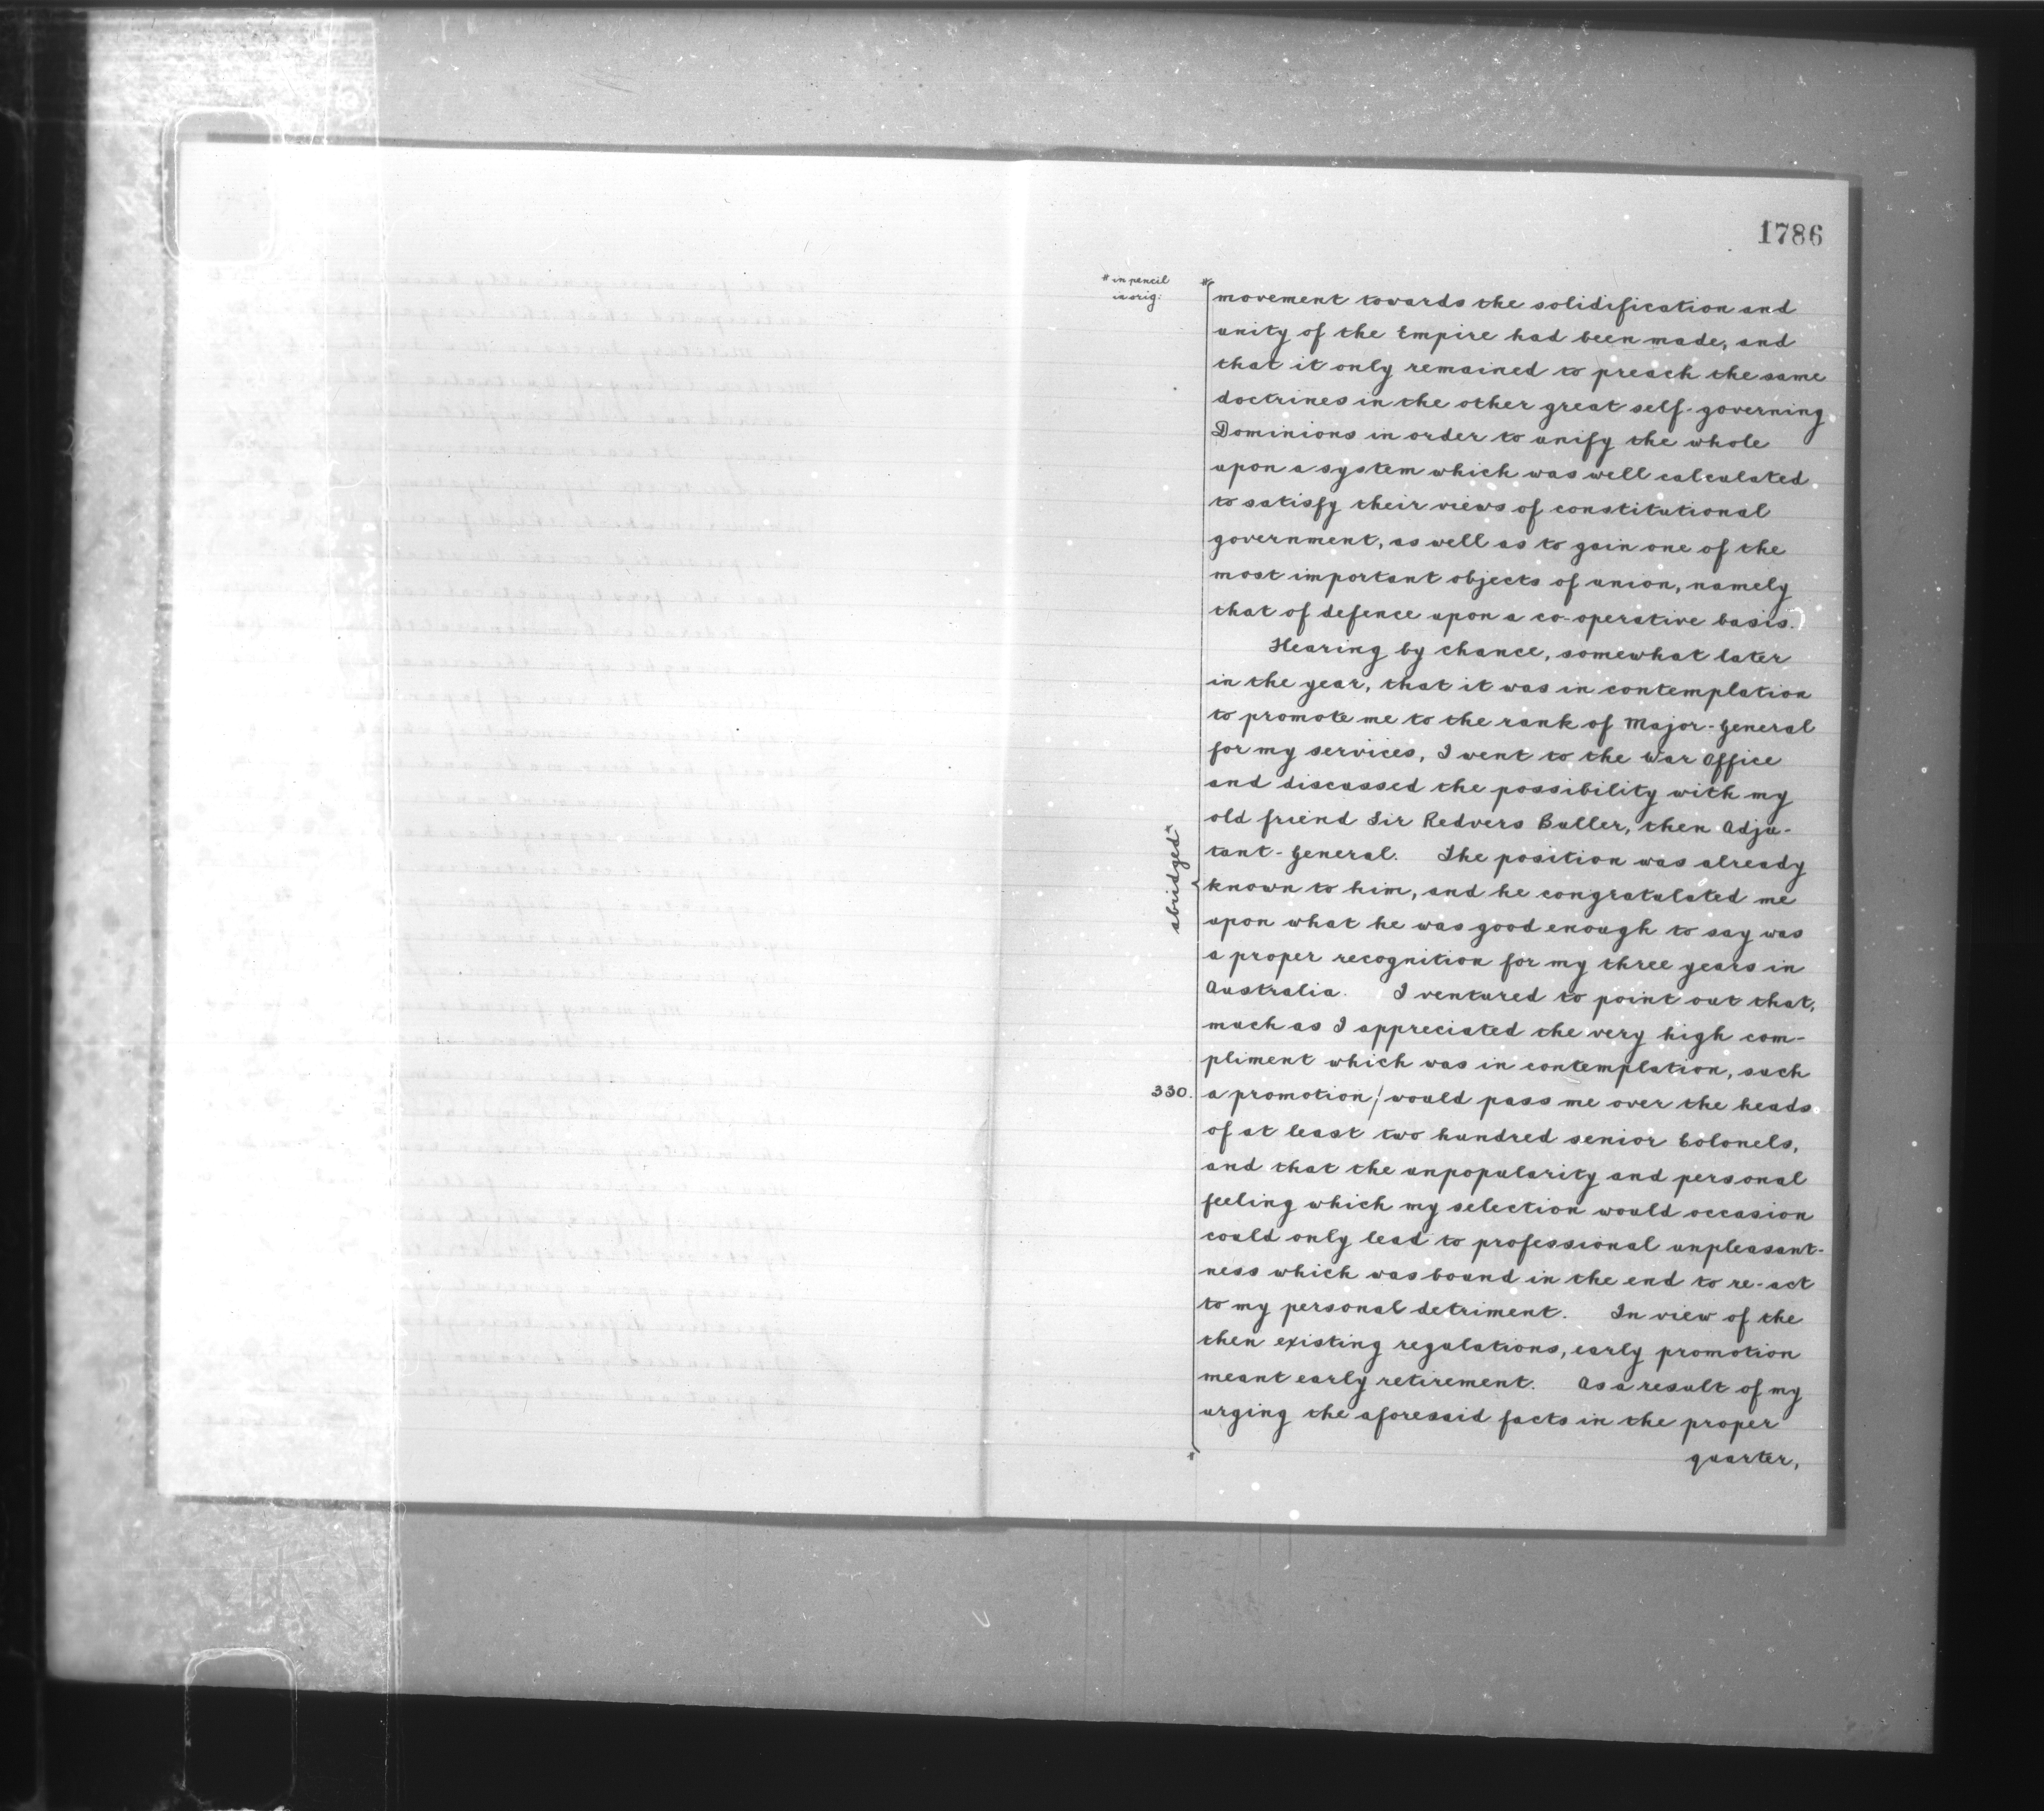 1786
* in pencil
in orig:
*
movement towards the solidification and
unity of the Empire had been made, and
that it only remained to preach the same
doctrines in the other great self-governing
Dominions in order to unify the whole
upon a system which was well calculated
to satisfy their views of constitutional
government, as well as to gain one of the
most important objects of union, namely
that of defence upon a co-operative basis.)
Hearing by chance, somewhat later
in the year, that it was in contemplation
to promote me to the rank of Major-General
for my services, I went to the War Office
and discussed the possibility with my
old friend Sir Redvers Buller, then Adju-
tant-General. The position was already
known to him, and he congratulated me
upon what he was good enough to say was
a proper recognition for my three years in
Australia. I ventured to point out that,
much as I appreciated the very high com-
pliment which was in contemplation, such
330. a promotion / would pass me over the heads
of at least two hundred senior Colonels,
and that the unpopularity and personal
feeling which my selection would occasion
could only lead to professional unpleasant-
ness which was bound in the end to re-act
to my personal detriment. In view of the
then existing regulations, early promotion
meant early retirement. As a result of my
urging the aforesaid facts in the proper
quarter,
abridged*